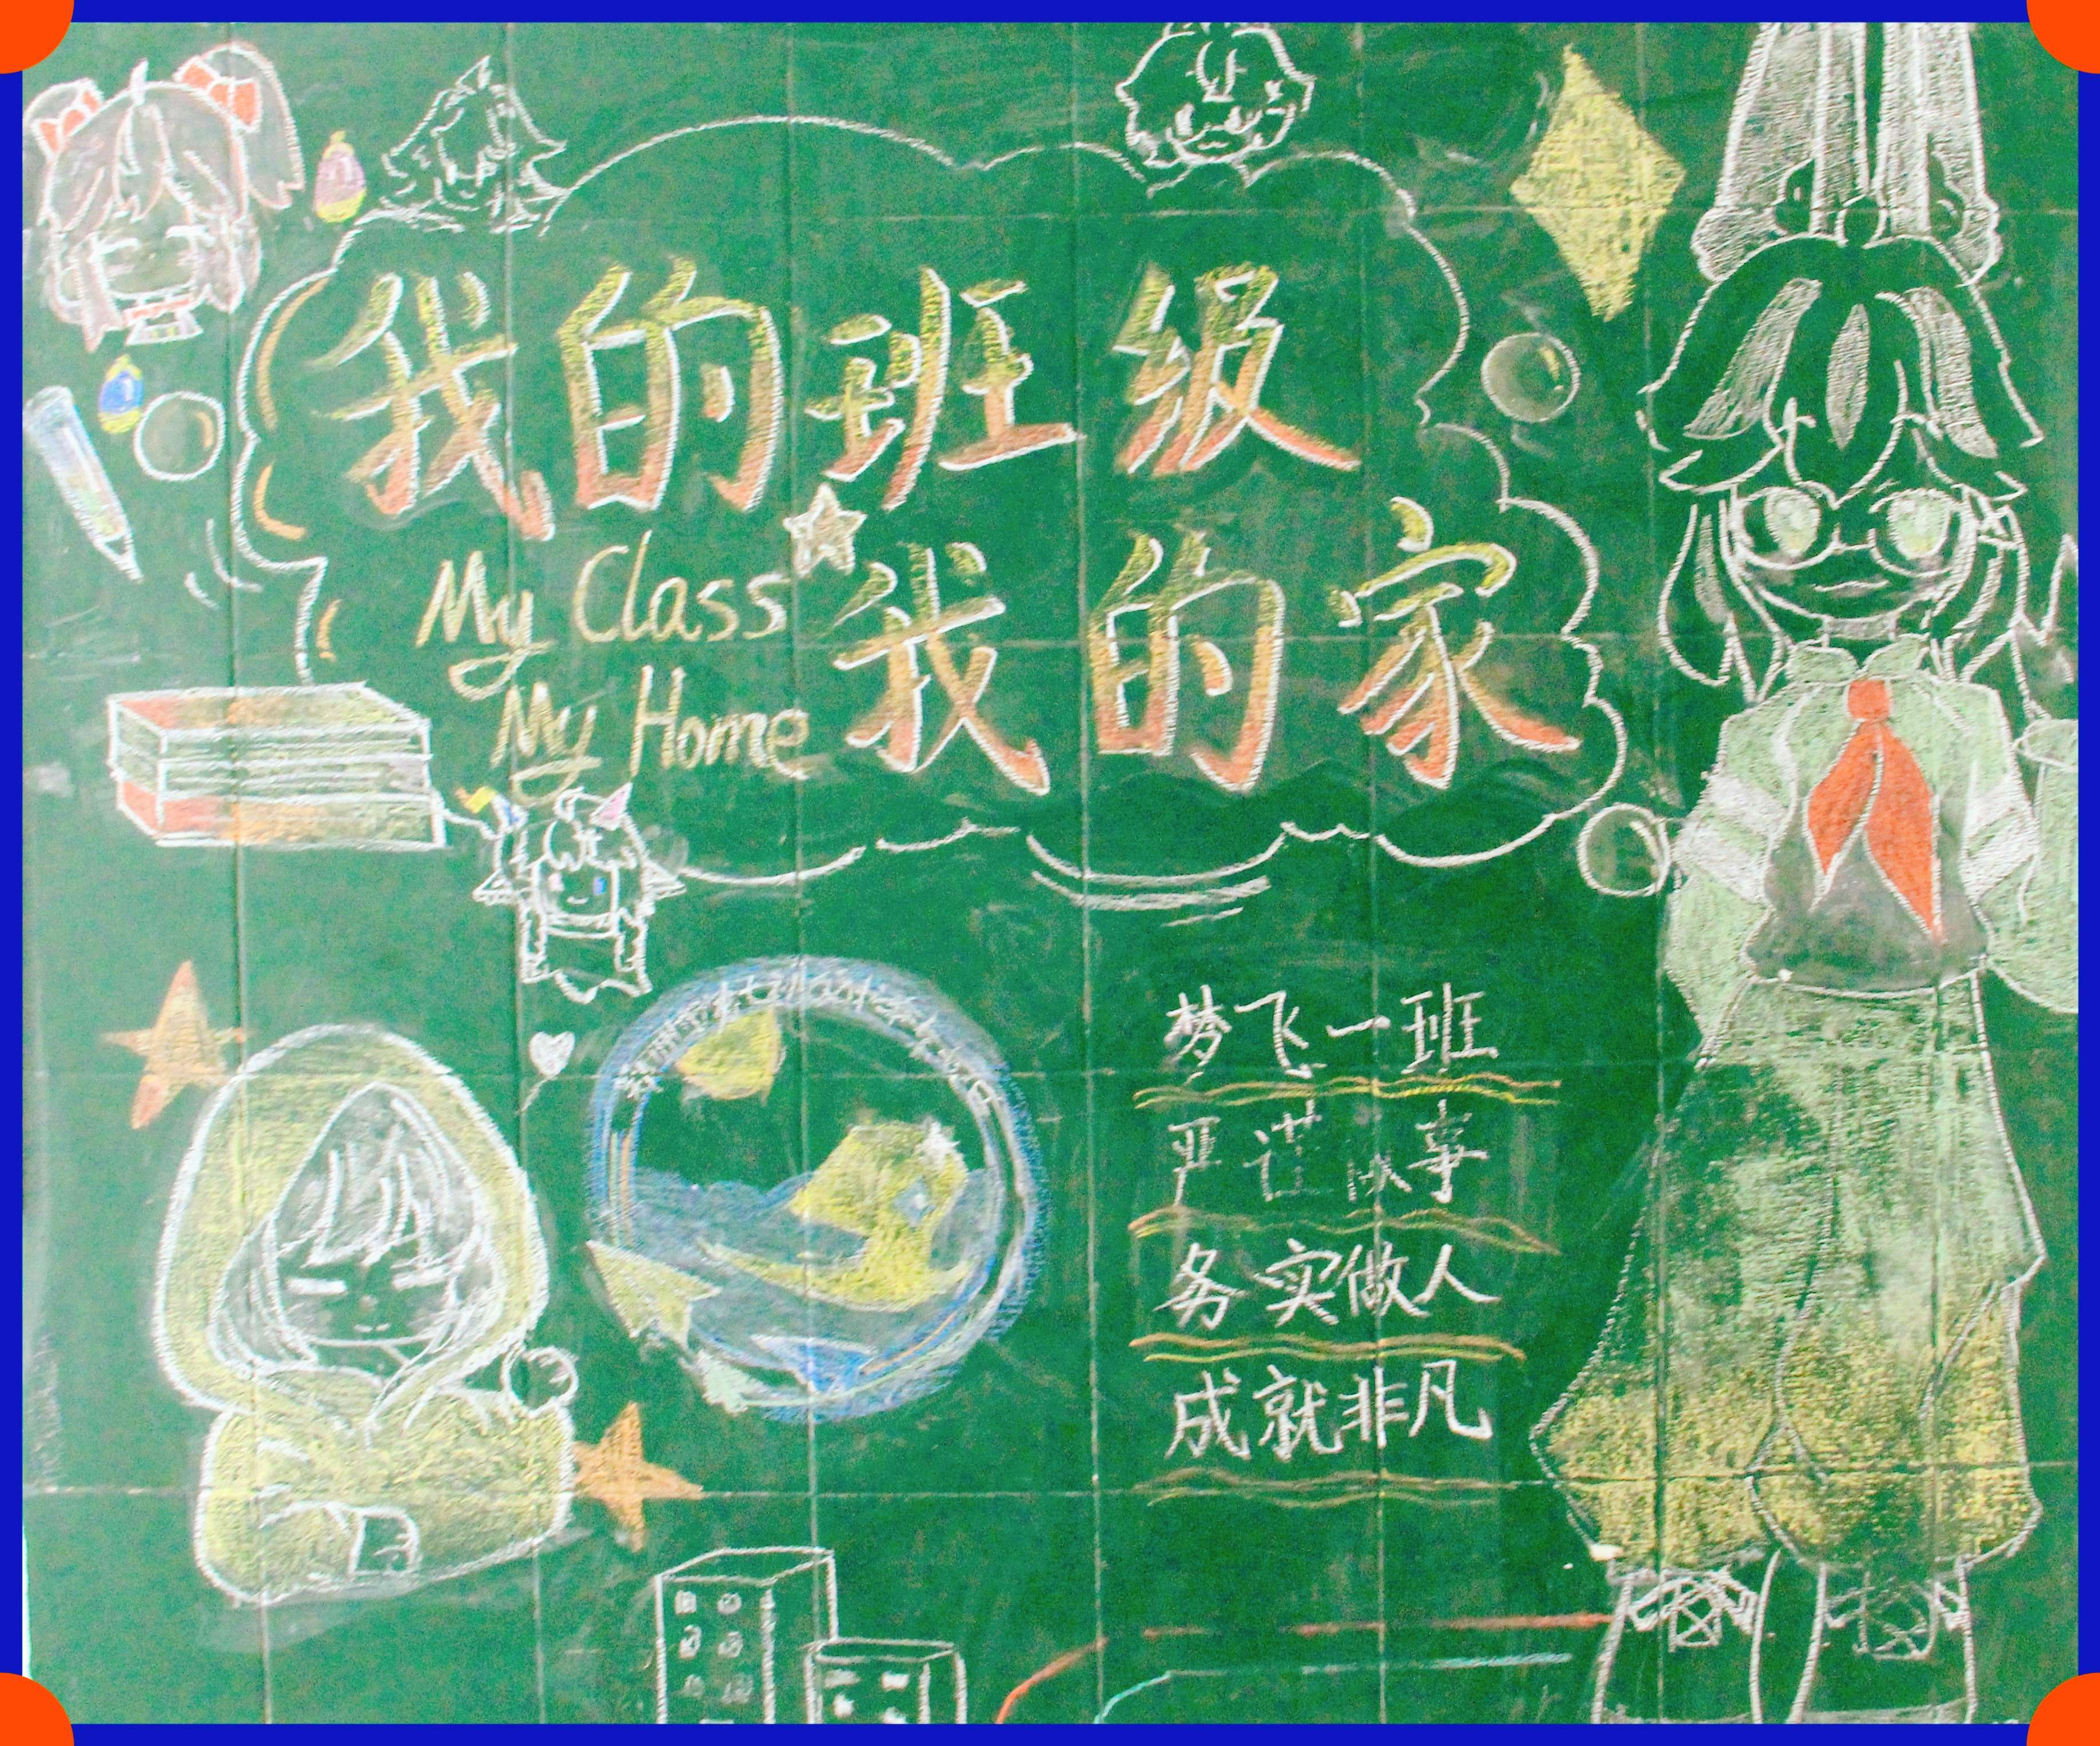 我的班级
My Class
My Home
我的家
梦飞一班
严谨从事
务实做人
成就非凡